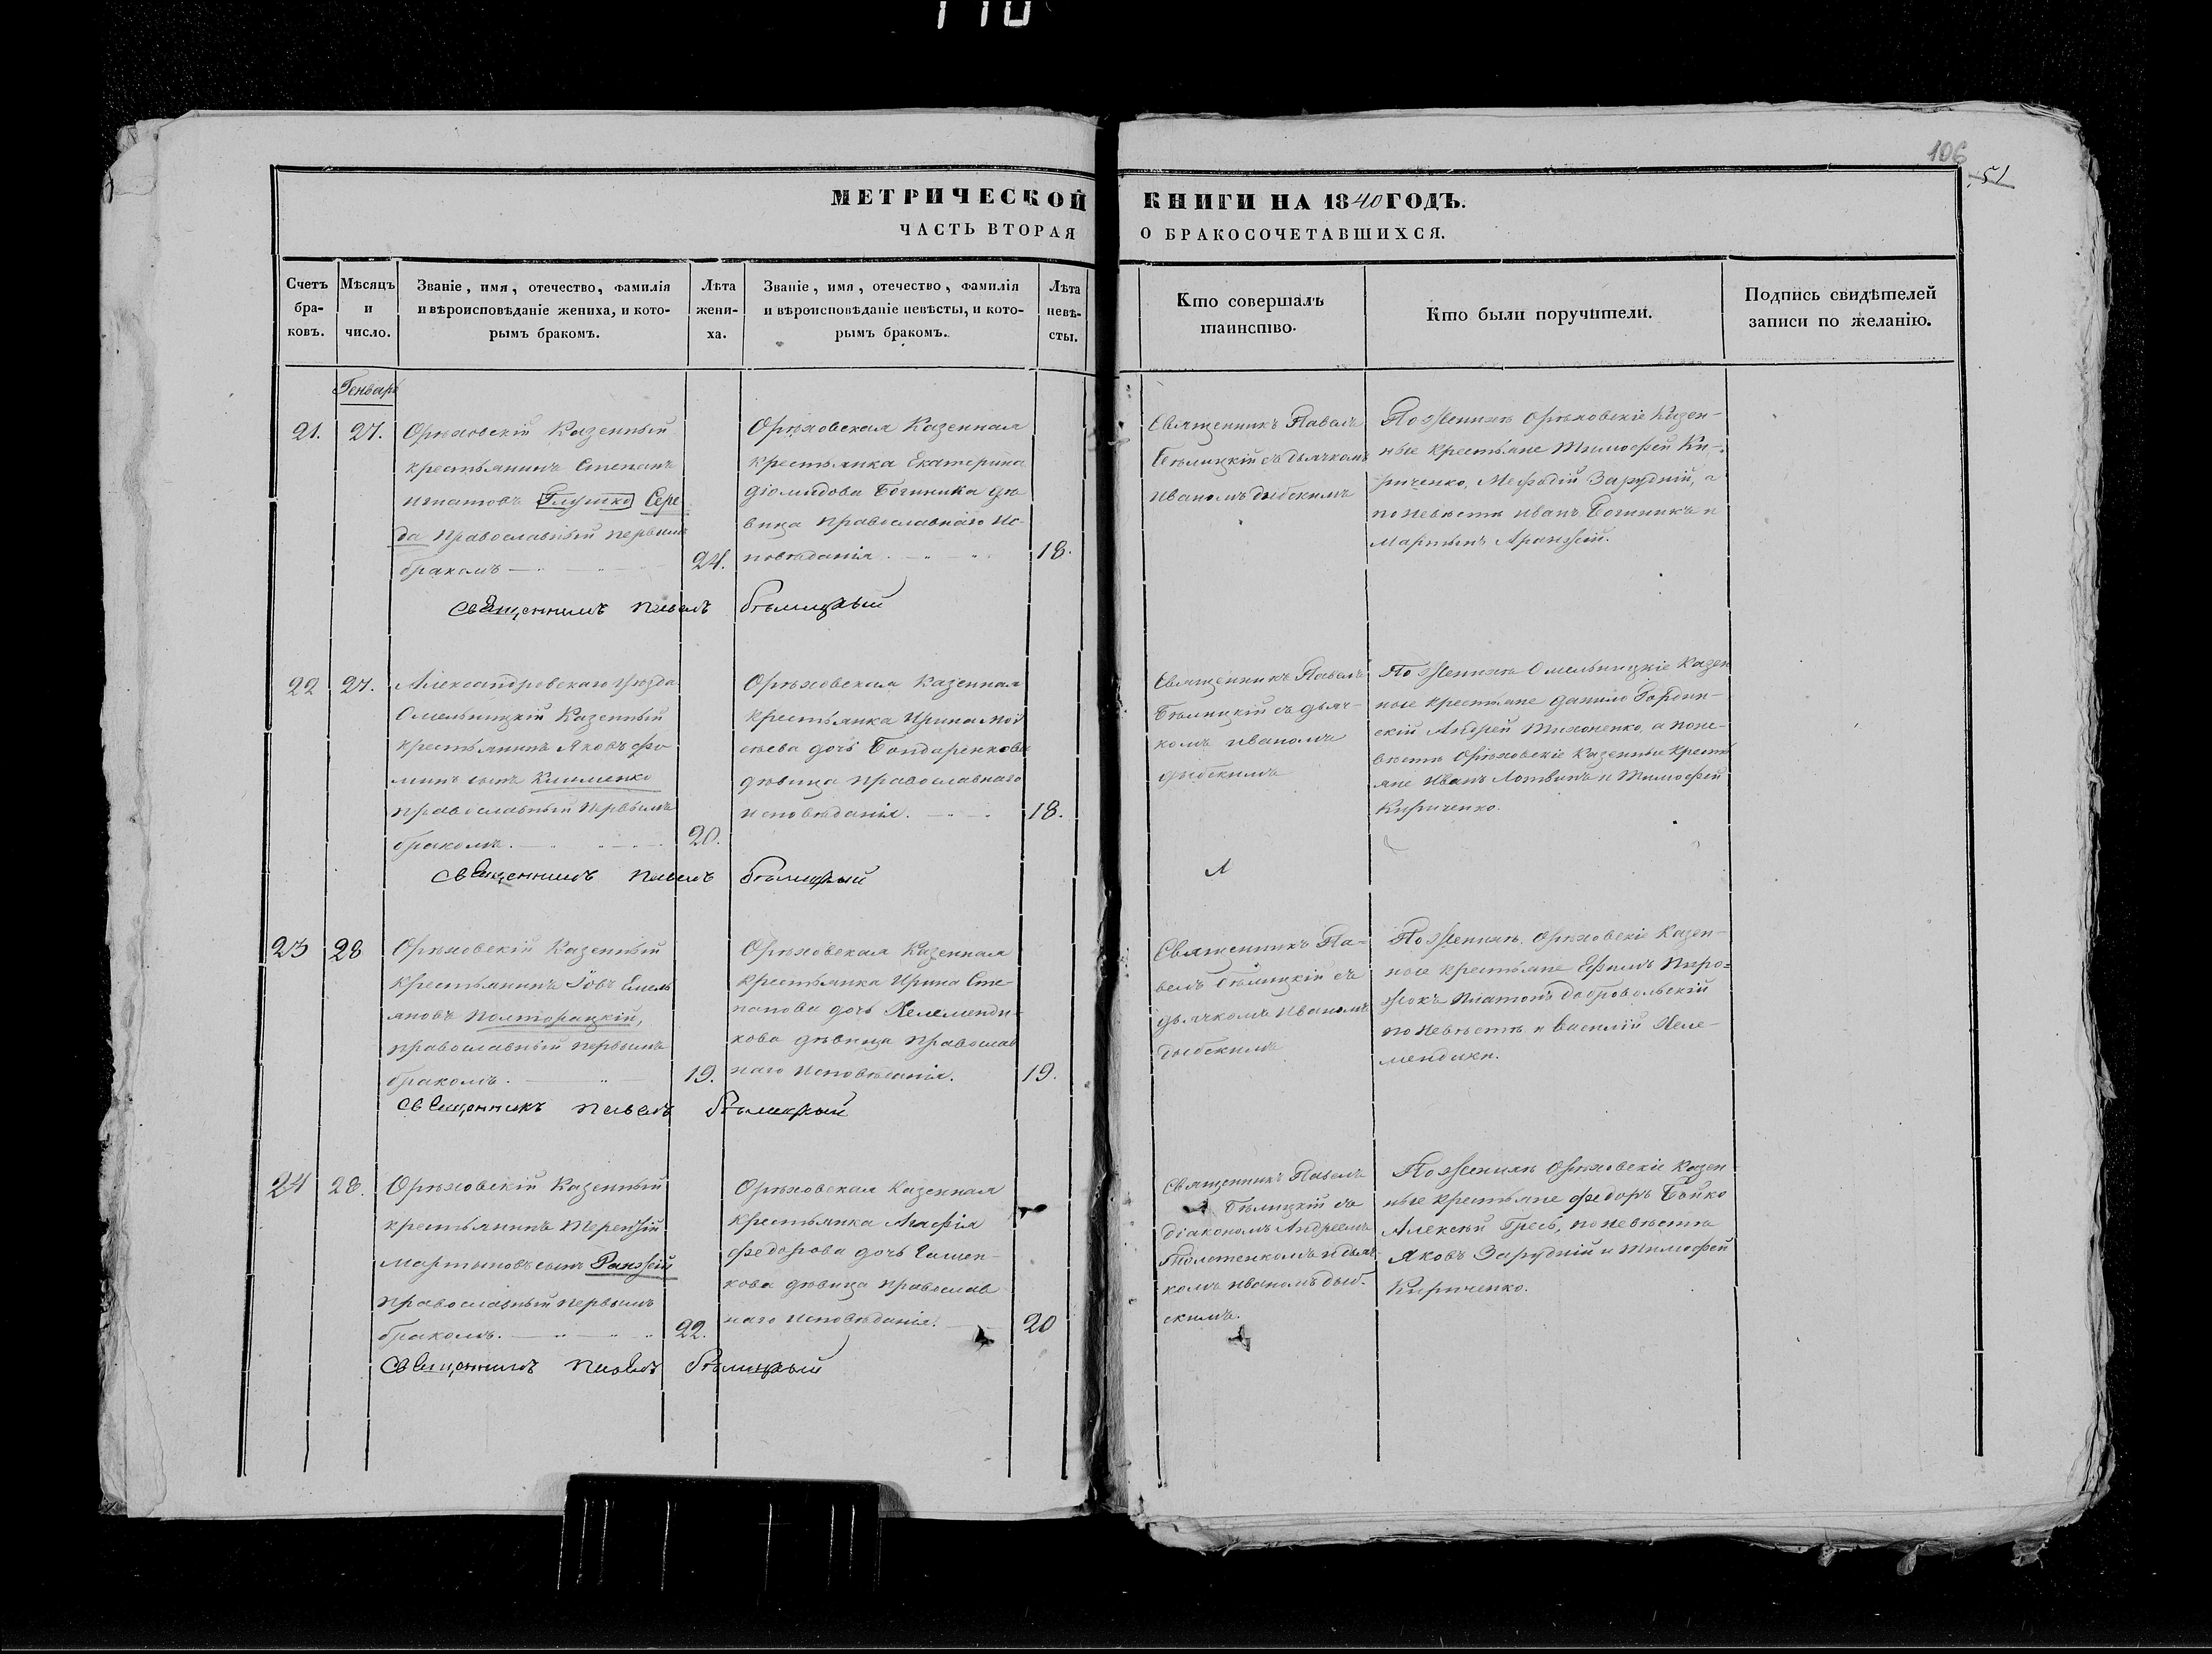 110
106
51
МЕТРИЧЕСКОЙ КНИГИ НА 1840 ГОДЪ.
ЧАСТЬ ВТОРАЯ О БРАКОСОЧЕТАВШИХСЯ.
Счетъ
бра-
ковъ.
Мѣсяцъ
и
число.
Званіе, имя, отечество, фамилія
и вѣроисповѣданіе жениха, и кото-
рымъ бракомъ.
Лѣта
жени-
ха.
Званіе, имя, отечество, фамилія
и вѣроисповѣданіе невѣсты, и кото-
рымъ бракомъ.
Лѣта
невѣ-
сты.
Кто совершалъ
таинство.
Кто были поручители.
Подпись свидѣтелей
записи по желанію.
Генварь
21.
27.
Орѣховскій Казенный
крестьянинъ Степанъ
Игнатовъ Глушко Сере
да православный первымъ
бракомъ
24.
Орѣховская Казенная
крестьянка Екатерина
Діомидова Богиника дѣ
вица православнаго ис-
повѣданія
18.
Священникъ Павелъ
Бѣлицкій съ дьячкомъ
Иваномъ Дыбскимъ
По женихѣ Орѣховскіе Казен-
ные крестьяне Тимофей Ки-
риченко, Мефодій Зарудній, а
по невѣстѣ Иванъ Богиникъ и
Мартынъ Аранжій.
Священникъ Павелъ Бѣлицкый
22
27.
Александровскаго уѣзда
Омельницкій Казенный
крестьянинъ Яковъ Фо
минъ сынъ Клименко
православный первымъ
бракомъ.
20.
Орѣховская Казенная
крестьянка Ирина Мої
сѣева дочь Бондаренкова
дѣвица православнаго
исповѣданія.
18.
Священникъ Павелъ
Бѣлицкій съ дьяч-
комъ Иваномъ
Дыбскимъ
По женихѣ Омельницкіе Казен
ные крестьяне Данило Гордин-
скій Андрей Тихоненко, а по не-
вѣстѣ Орѣховскіе Казенные кресть
яне Иванъ Литвинъ и Тимофей
Кириченко.
Священникъ Павелъ Бѣлицкый
23
28
Орѣховскій Казенный
крестьянинъ Іовъ Емель
яновъ Полторацкій,
православный первымъ
бракомъ.
19.
Орѣховская Казенная
крестьянка Ирина Сте
панова дочь Келеменди-
кова дѣвица православ
наго исповѣданія.
19.
Священникъ Па-
велъ Бѣлицкій съ
дьячкомъ Иваномъ
Дыбскимъ
По женихѣ Орѣховскіе Казен-
ные крестьяне Ефимъ Пиро=
жокъ Платонъ Добровольскій
по невѣстѣ и Василій Келе-
мендики.
Священникъ Павелъ Бѣлицкый
24
28.
Орѣховскій Казенный
крестьянинъ Терентій
Мартыновъ сынъ Ранжій
православный первымъ
бракомъ.
22.
Орѣховская Казенная
крестьянка Агафія
Федорова дочь
кова дѣвица православ
наго исповѣданія.
20
Священникъ Павелъ
Бѣлицкій съ
діакономъ Андреемъ
и дьяч-
комъ Иваномъ Дыб-
скимъ.
По женихѣ Орѣховскіе Казен
ные крестьяне Федоръ Бойко
Алексѣй Гресь, по невѣстѣ
Яковъ Зарудній и Тимофей
Кириченко.
Священникъ Павелъ Бѣлицкый